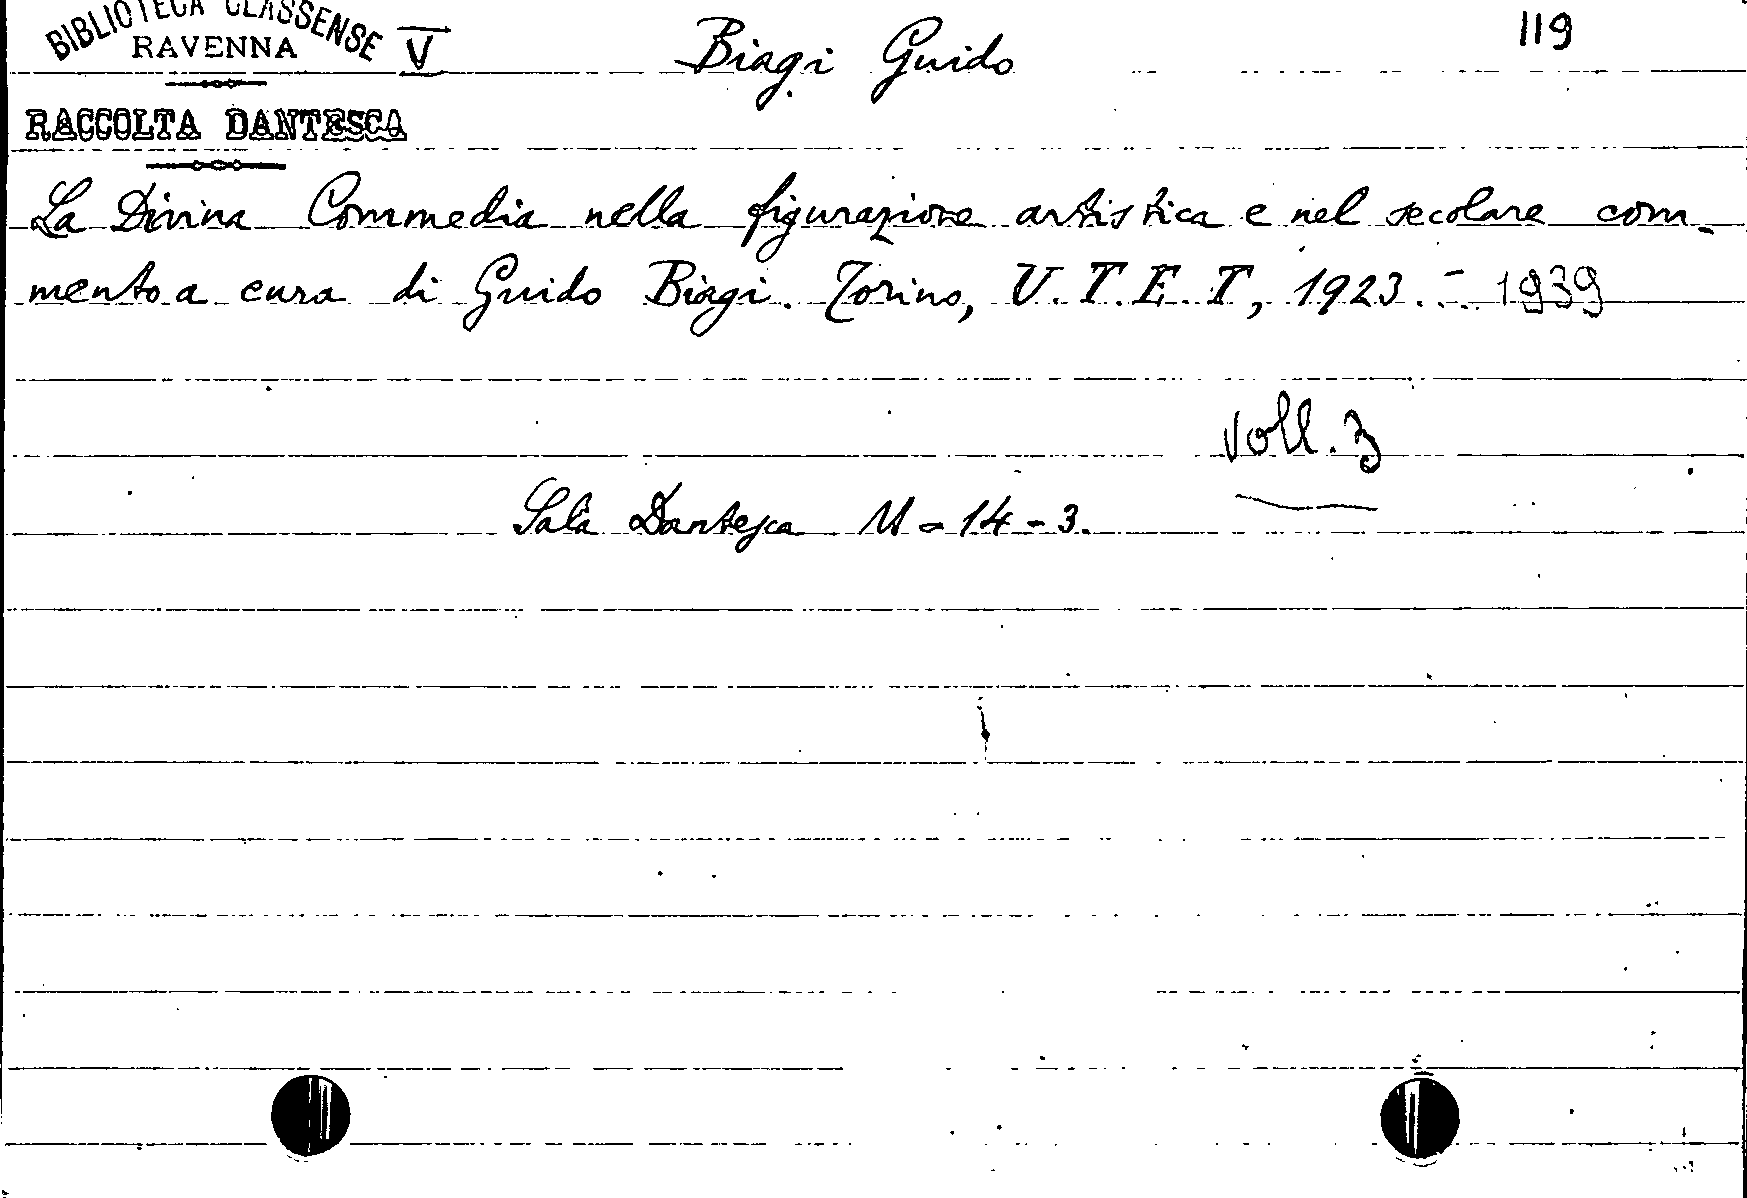 BIBLIOTECA CLASSENSE
RAVENNA
V
Biagi Guido
119
RACCOLTA DANTESCA
La Divina Commedia nella figurazione artistica e nel secolare com-
mento a cura di Guido Biagi. Torino, U.T.E.T, 1923.-- 1939
voll. 3
Sala Dantesca 11-14-3.